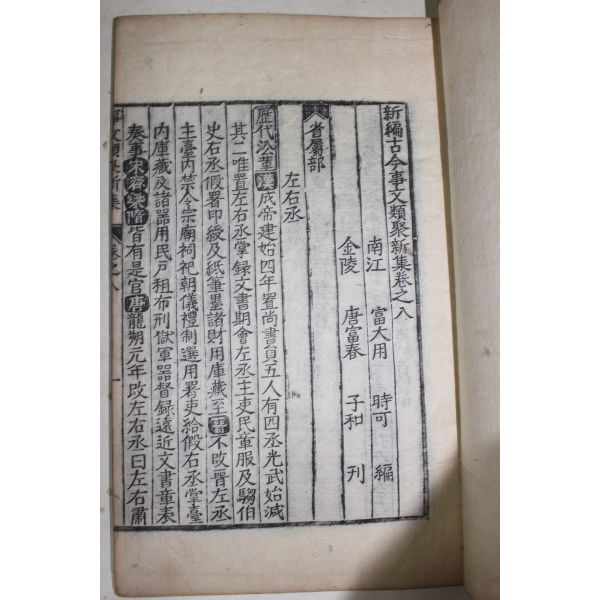 新編古今事文類聚新集卷之八
南江 富大用 時可 編
金陵 唐富春 子和 刊
省屬部
左右丞
歷代沿革 漢 成帝建始四年置尚書員五人有四丞光武始減
其二唯置左右丞掌録文書期會左丞主吏民章服及騶伯
史右丞假署印綬及紙筆墨諸財用庫藏至晉不改晉左丞
主臺内禁令宗廟祠祀朝儀禮制選用署吏給假右丞掌臺
内庫藏及諸器用民戸租布刑獄軍器督録遠近文書章表
奏事宋齊梁隋皆有是官唐龍朔元年改左右丞曰左右肅
事文類聚新集 卷之八 一